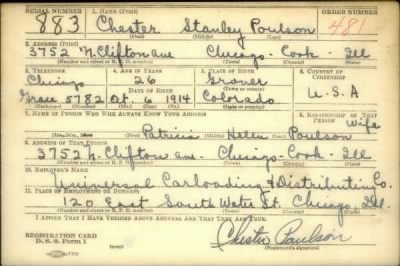 SERIAL NUMBER 1. NAME (Print) ORDER NUMBER
883 Chester Stanley Poulson 481
(First) (Middle) (Last)
2. ADDRESS (Print)
3752 N. Clifton ave Chicago - Cook - Ill
(Number and street or R. F. D. number) (Town) (County) (State)
3. TELEPHONE 4. AGE IN YEARS 5. PLACE OF BIRTH 6. COUNTRY OF CITIZENSHIP
Chicago 26 Grover
DATE OF BIRTH (Town or county)
Grace 5782 Oct. 6 1914 Colorado U.S.A
(Exchange) (Number) (Mo.) (Day) (Yr.) (State or country)
7. NAME OF PERSON WHO WILL ALWAYS KNOW YOUR ADDRESS 8. RELATIONSHIP OF THAT PERSON
Patricia Hellen Poulson Wife
(Mr., Mrs., Miss) (First) (Middle) (Last)
9. ADDRESS OF THAT PERSON
3752 N. Clifton ave - Chicago - Cook - Ill
(Number and street or R. F. D. number) (Town) (County) (State)
10. EMPLOYER'S NAME
Universal Carloading & Distributing Co.
11. PLACE OF EMPLOYMENT OR BUSINESS
120 East South Water St. Chicago, Ill.
(Number and street or R. F. D. number) (Town) (County) (State)
I AFFIRM THAT I HAVE VERIFIED ABOVE ANSWERS AND THAT THEY ARE TRUE.
REGISTRATION CARD
D. S. S. Form 1 Chester Poulson
(Registrant's signature)